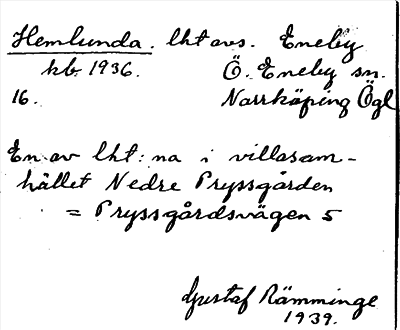 Hemlunda. lht avs. Eneby
kb. 1936. Ö. Eneby sn.
16. Norrköping Ögl
En av lht:na i villasam-
hället Nedre Pryssgården
= Pryssgårdsvägen 5
Gustaf Rämminge
1939.